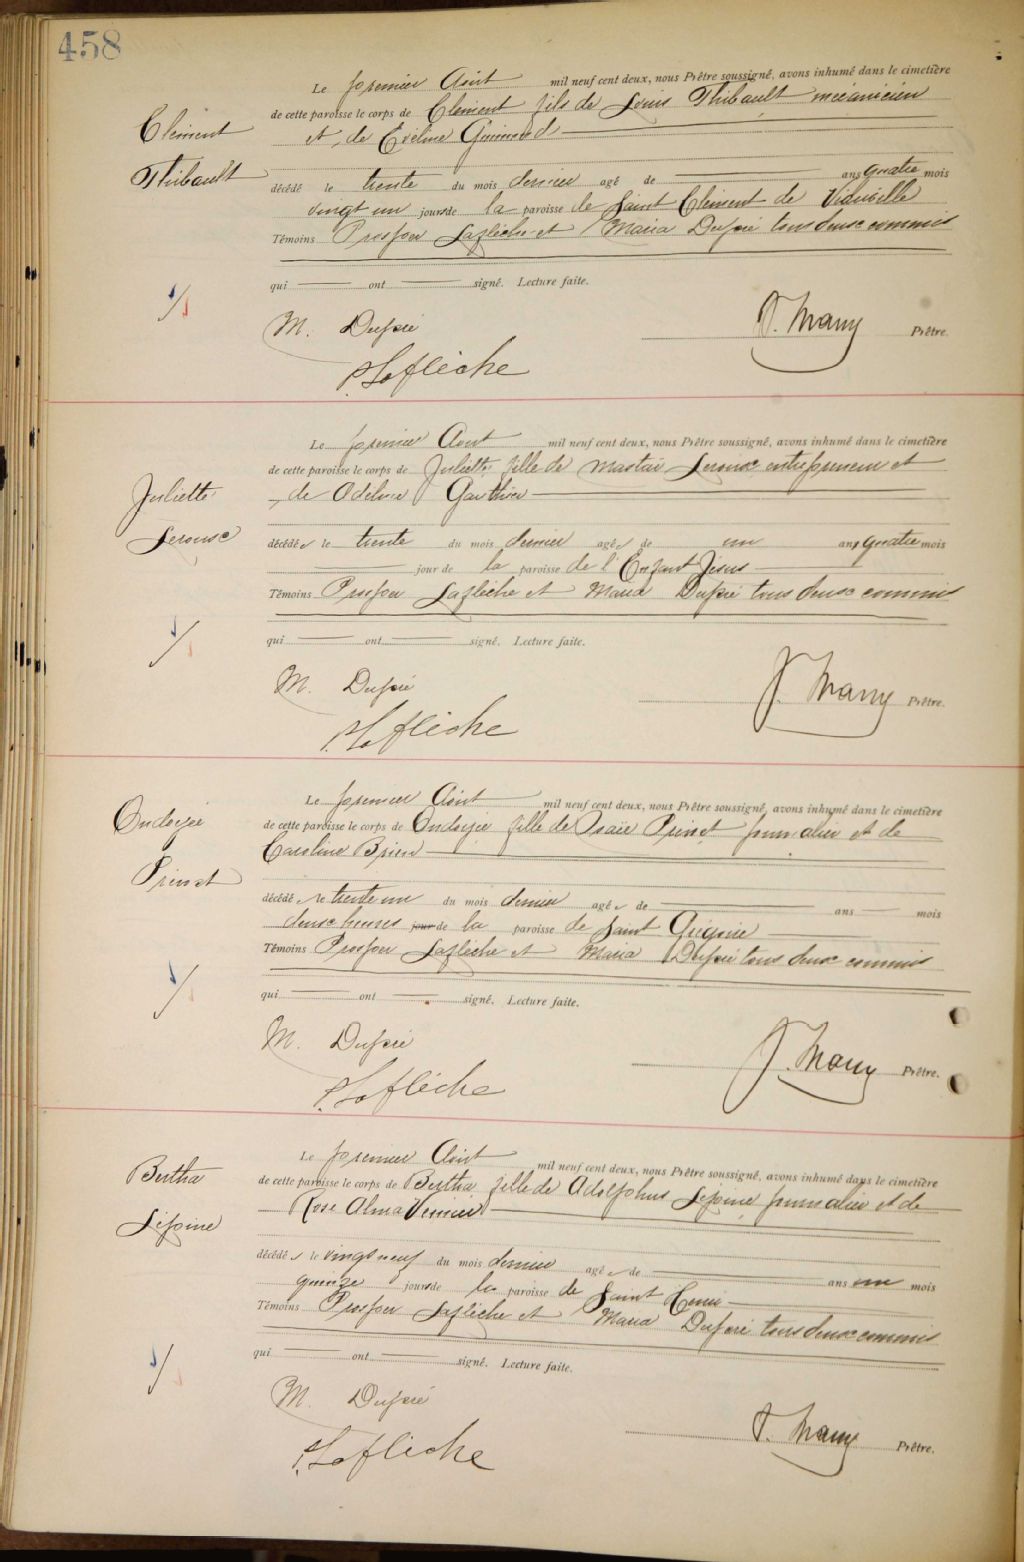 458
Le premier Août mil neuf cent deux, nous Prêtre soussigné, avons inhumé dans le cimetière
de cette paroisse le corps de Clément fils de Louis Thibault mécanicien
Clément
et de Eveline Guimond
Thibault
décédé le trente du mois dernier agé de ans quatre mois
vingt un jours de la paroisse de Saint Clément de Viauville
Témoins Prosper Laflèche et Maria Dupré tous deux commis
qui ont signé. Lecture faite.
M. Dupré
P. Laflèche
Prêtre.
Le premier Août mil neuf cent deux, nous Prêtre soussigné, avons inhumé dans le cimetière
de cette paroisse le corps de Juliette fille de Mastaï Leroux entrepreneur et
Juliette
de Odélina Gauthier
Leroux
décédée le trente du mois dernier agée de un ans quatre mois
jour de la paroisse de l'Enfant Jésus
Témoins Prosper Laflèche et Maria Dupré tous deux commis
qui ont signé. Lecture faite.
M. Dupré
P. Laflèche
Prêtre.
Le premier Août mil neuf cent deux, nous Prêtre soussigné, avons inhumé dans le cimetière
Ondoyée
de cette paroisse le corps de Ondoyée fille de Isaïe Primot journalier et de
Caroline Brien
décédée le trente un du mois dernier agée de ans mois
deux heures jour de la paroisse de Saint Grégoire
Témoins Prosper Laflèche et Maria Dupré tous deux commis
qui ont signé. Lecture faite.
M. Dupré
P. Laflèche
Prêtre.
Le premier Août mil neuf cent deux, nous Prêtre soussigné, avons inhumé dans le cimetière
Bertha
de cette paroisse le corps de Bertha fille de Adolphus Lépine journalier et de
Lépine
Rose Alma Vernier
décédée le vingt neuf du mois dernier agée de ans un mois
quinze jours de la paroisse de Saint Henri
Témoins Prosper Laflèche et Maria Dupré tous deux commis
qui ont signé. Lecture faite.
M. Dupré
P. Laflèche
Prêtre.